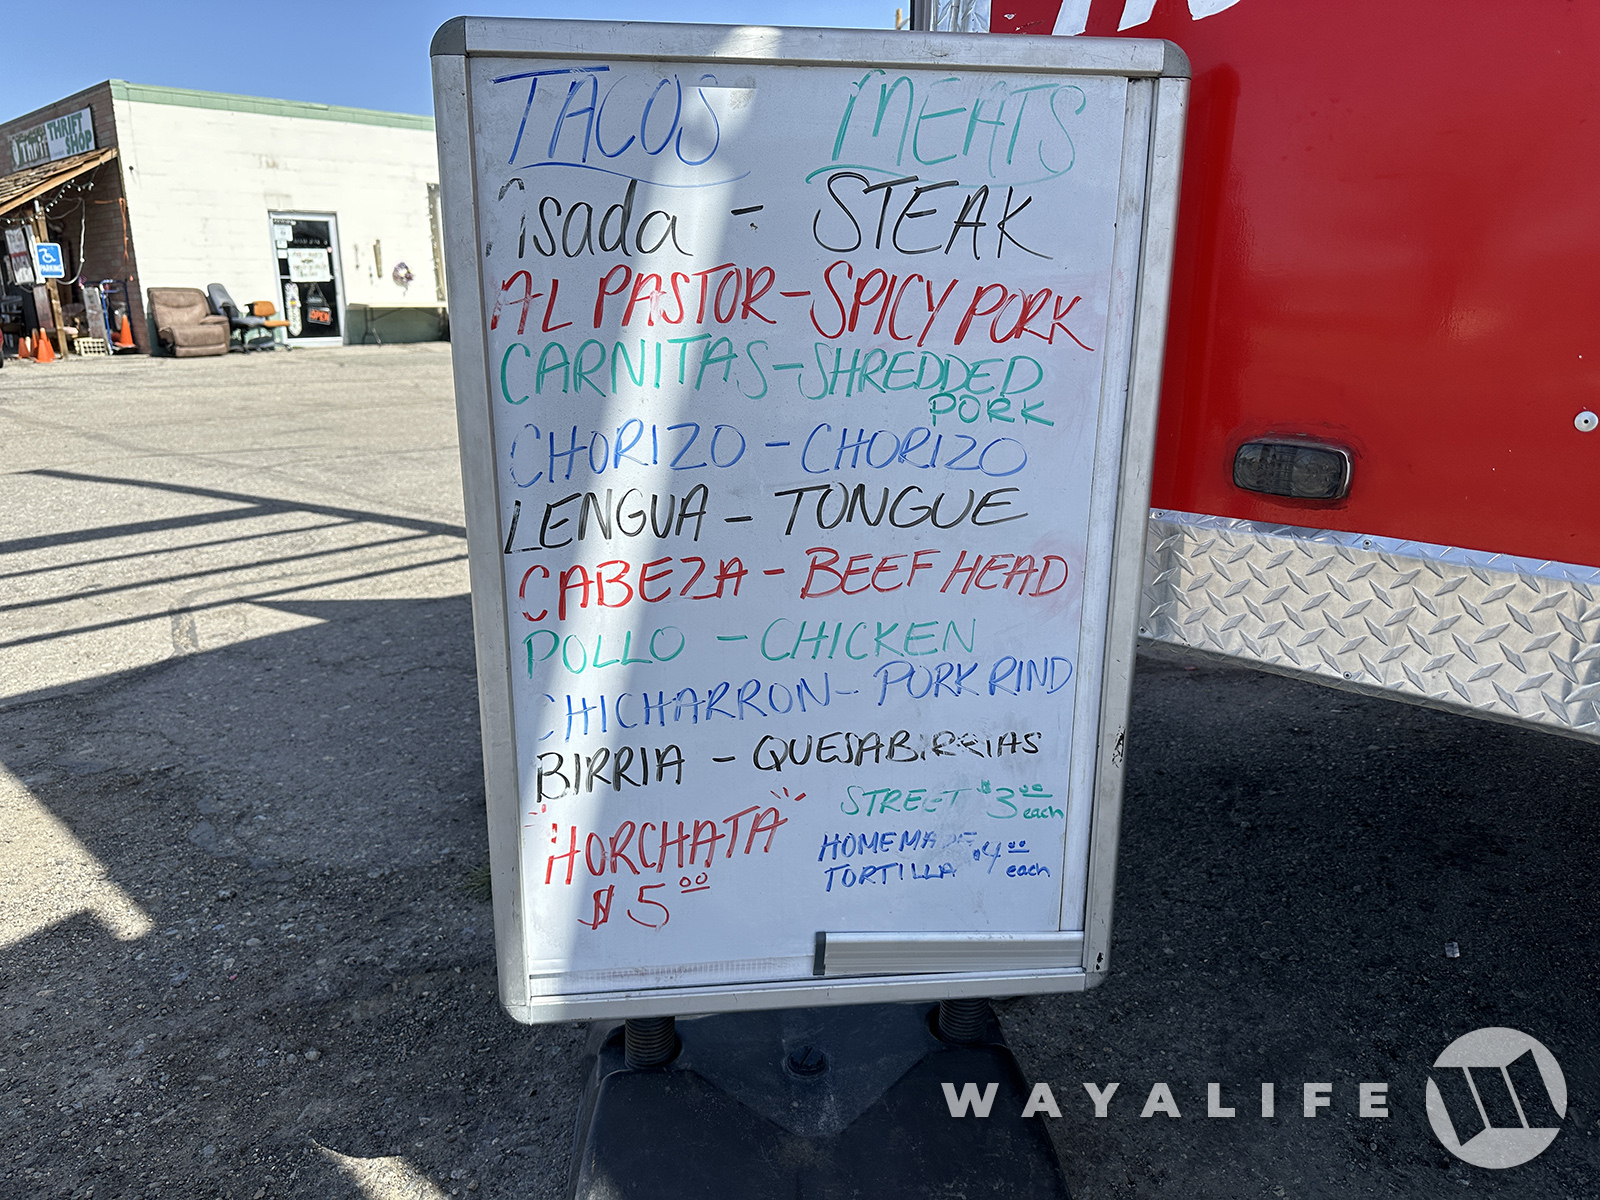 TACOS MEATS
Asada - STEAK
AL PASTOR - SPICY PORK
CARNITAS - SHREDDED
PORK
CHORIZO - CHORIZO
LENGUA - TONGUE
CABEZA - BEEF HEAD
POLLO - CHICKEN
CHICHARRON - PORK RIND
BIRRIA - QUESABIRRIAS
"HORCHATA"
$5.00
STREET $3.00 each
HOMEMADE
TORTILLA $4.00 each
THRIFT
SHOP
Thrift
PARKING
OPEN
WAYALIFE